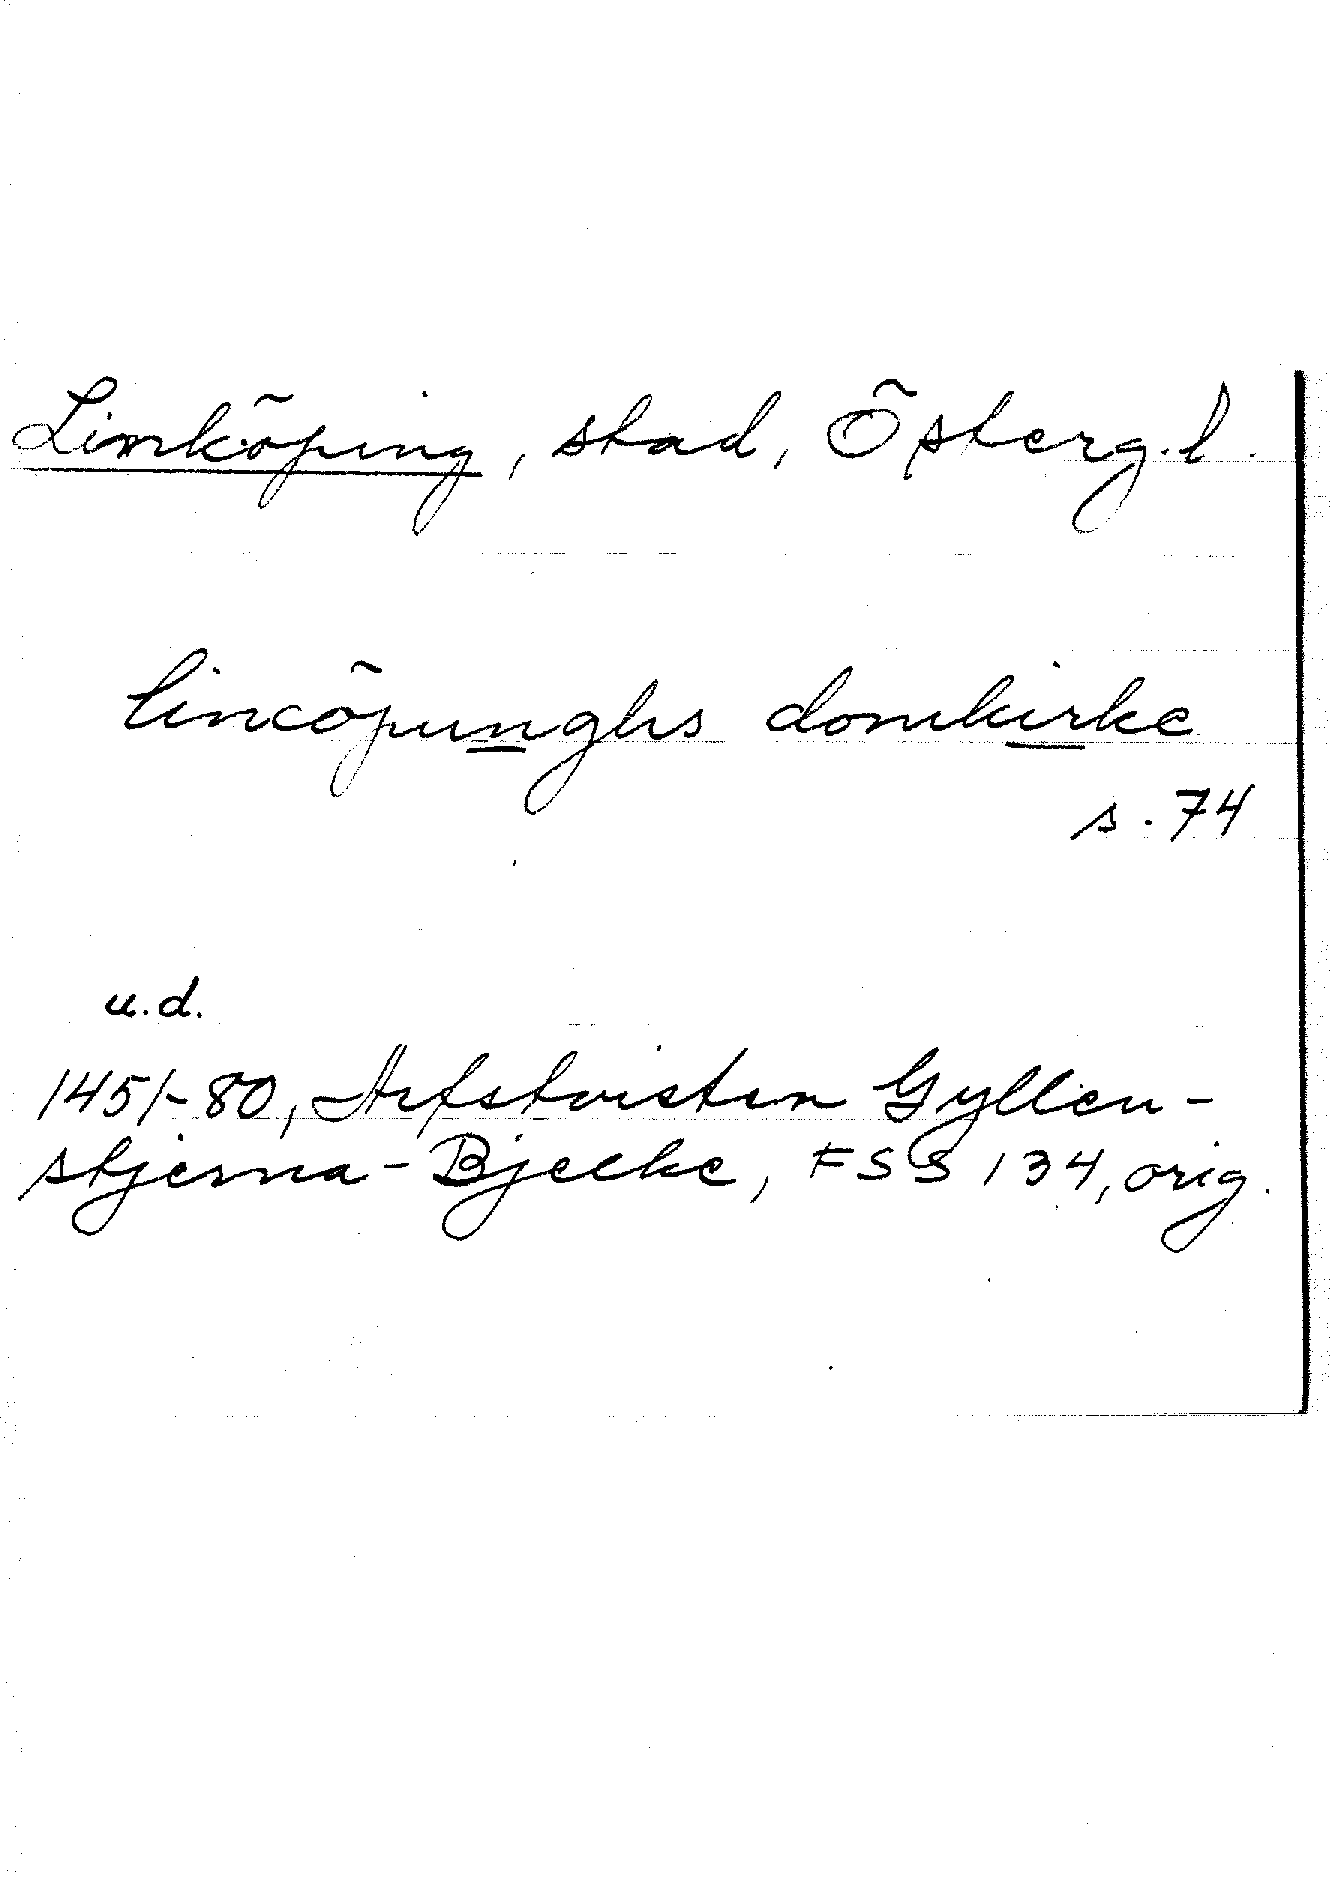 Linköping, stad, Österg.l.
lincöpunghs domkirke
s. 74
u.d.
1451-80, Arfstvisten Gyllen-
stjerna-Bjelke, FSS 134, orig.